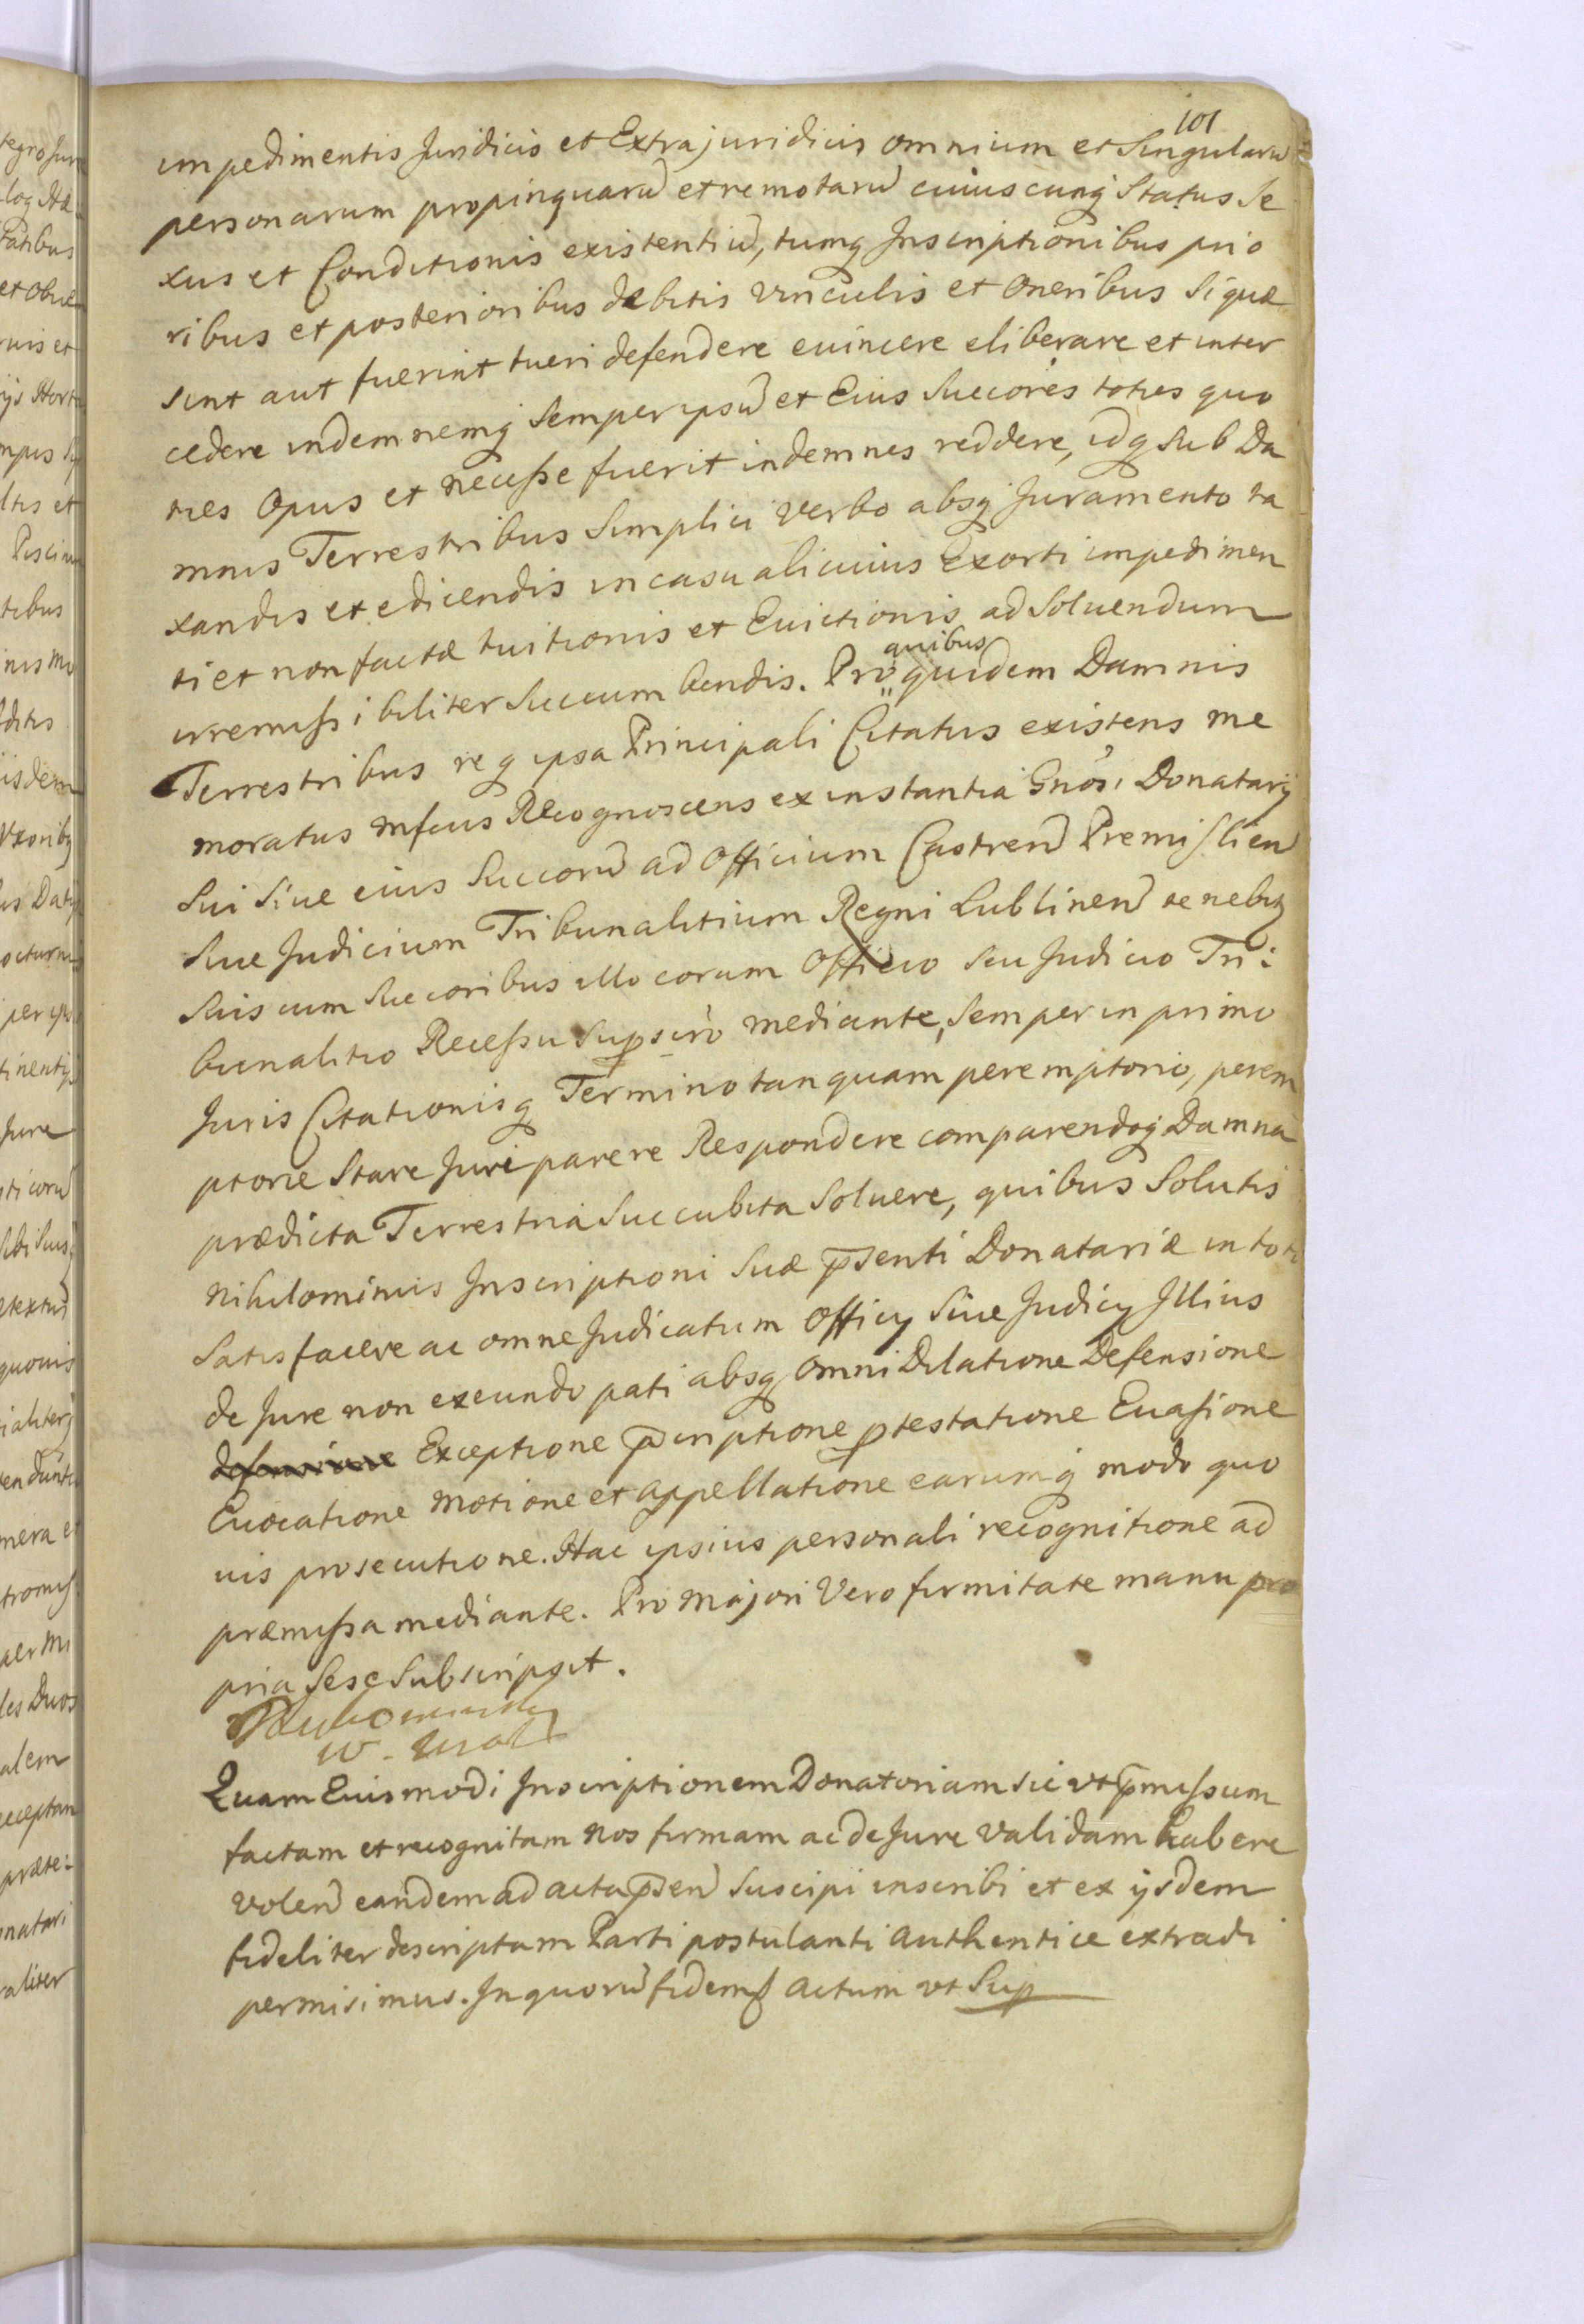 101
impedimentis Juridicis et Extrajuridicis omnium et Singularũ
personarum propinquarũ et remotarũ cuiuscunq Status Se
xus et Conditionis existentiũ, tumq Inscriptionibus prio
ribus et posterioribus debitis vinculis et Oneribus Siquæ
sint aut fuerint tueri defendere euincere eliberare et inter
cedere indemnemq Semper ipsũ et Eius Succores toties quo
ties Opus et necesse fuerit indemnes reddere, idq Sub Da
mnis Terrestribus Simplici verbo absq Juramento ta
xandis et edicendis in casu alicuius Exorti impedimen
ti et non factæ tuitionis et Euictionis ad Soluendum
irremissibiliter Succumbendis. Pro quibus quidem Damnis
Terrestribus req ipsa Principali Citatus existens me
moratus mfcus Recognoscens ex instantia Gnosi Donatarij
Sui Siue eius Succorũ ad Officium Castren Premislien
Siue Judicium Tribunalitium Regni Lublinen tenebit
Suis cum Succoribus illo coram Officio Seu Judicio Tri:
bunalitio Recessu Supscro mediante, Semper in primo
Juris Citationisq Termino tanquam peremptorio, perem
ptorie Stare Juri parere Respondere comparendoq Damna
prædicta Terrestria Succubita Soluere, quibus Solutis
nihilominus Inscriptioni Suæ pñsenti Donatariæ in toto
Satisfacere ac omne Judicatum Officij Siue Judicij Illius
de Jure non exeundo pati absq omni Dilatione Defensione
defensione Exceptione pscriptione ptestatione Euasione
Euocatione motione et appellatione earumq modo quo
uis prosecutione. Hac ipsius personali recognitione ad
præmissa mediante. Pro Majori Vero firmitate manu pro
pria Sese Subscripsit.
Quam Euismodi Inscriptionem Donatoriam Sic vt pmissum
factam et recognitam nos firmam ac de Jure validam habere
volen eandem ad acta psen Suscipi inscribi et ex ijsdem
fideliter descriptam Parti postulanti authentice extradi
permisimus. In quorũ fidem Actum vt Sup